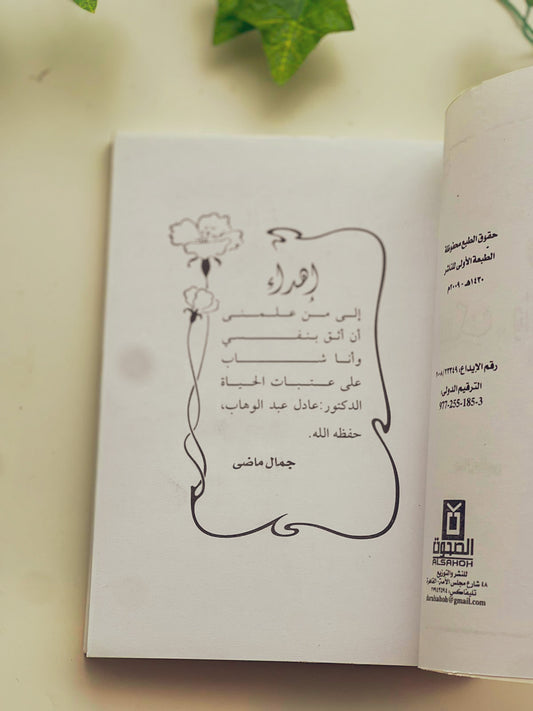 حقوق الطبع محفوظة
الطبعة الأولى للناشر
١٤٣٠هـ - ٢٠٠٩م
رقم الإيداع: ٢٠٠٨/٢٣٣٤٩
الترقيم الدولى:
977-255-185-3
الصحوة
ALSAHOH
للنشر والتوزيع
٤٨ شارع مجلس الأمة- القاهرة
تليفاكس:
darsahoh@gmail.com
إهداء
إلى من علمنى
أن أثق بنفسي
وأنا شاب
على عتبات الحياة
الدكتور:عادل عبد الوهاب،
حفظه الله.
جمال ماضى